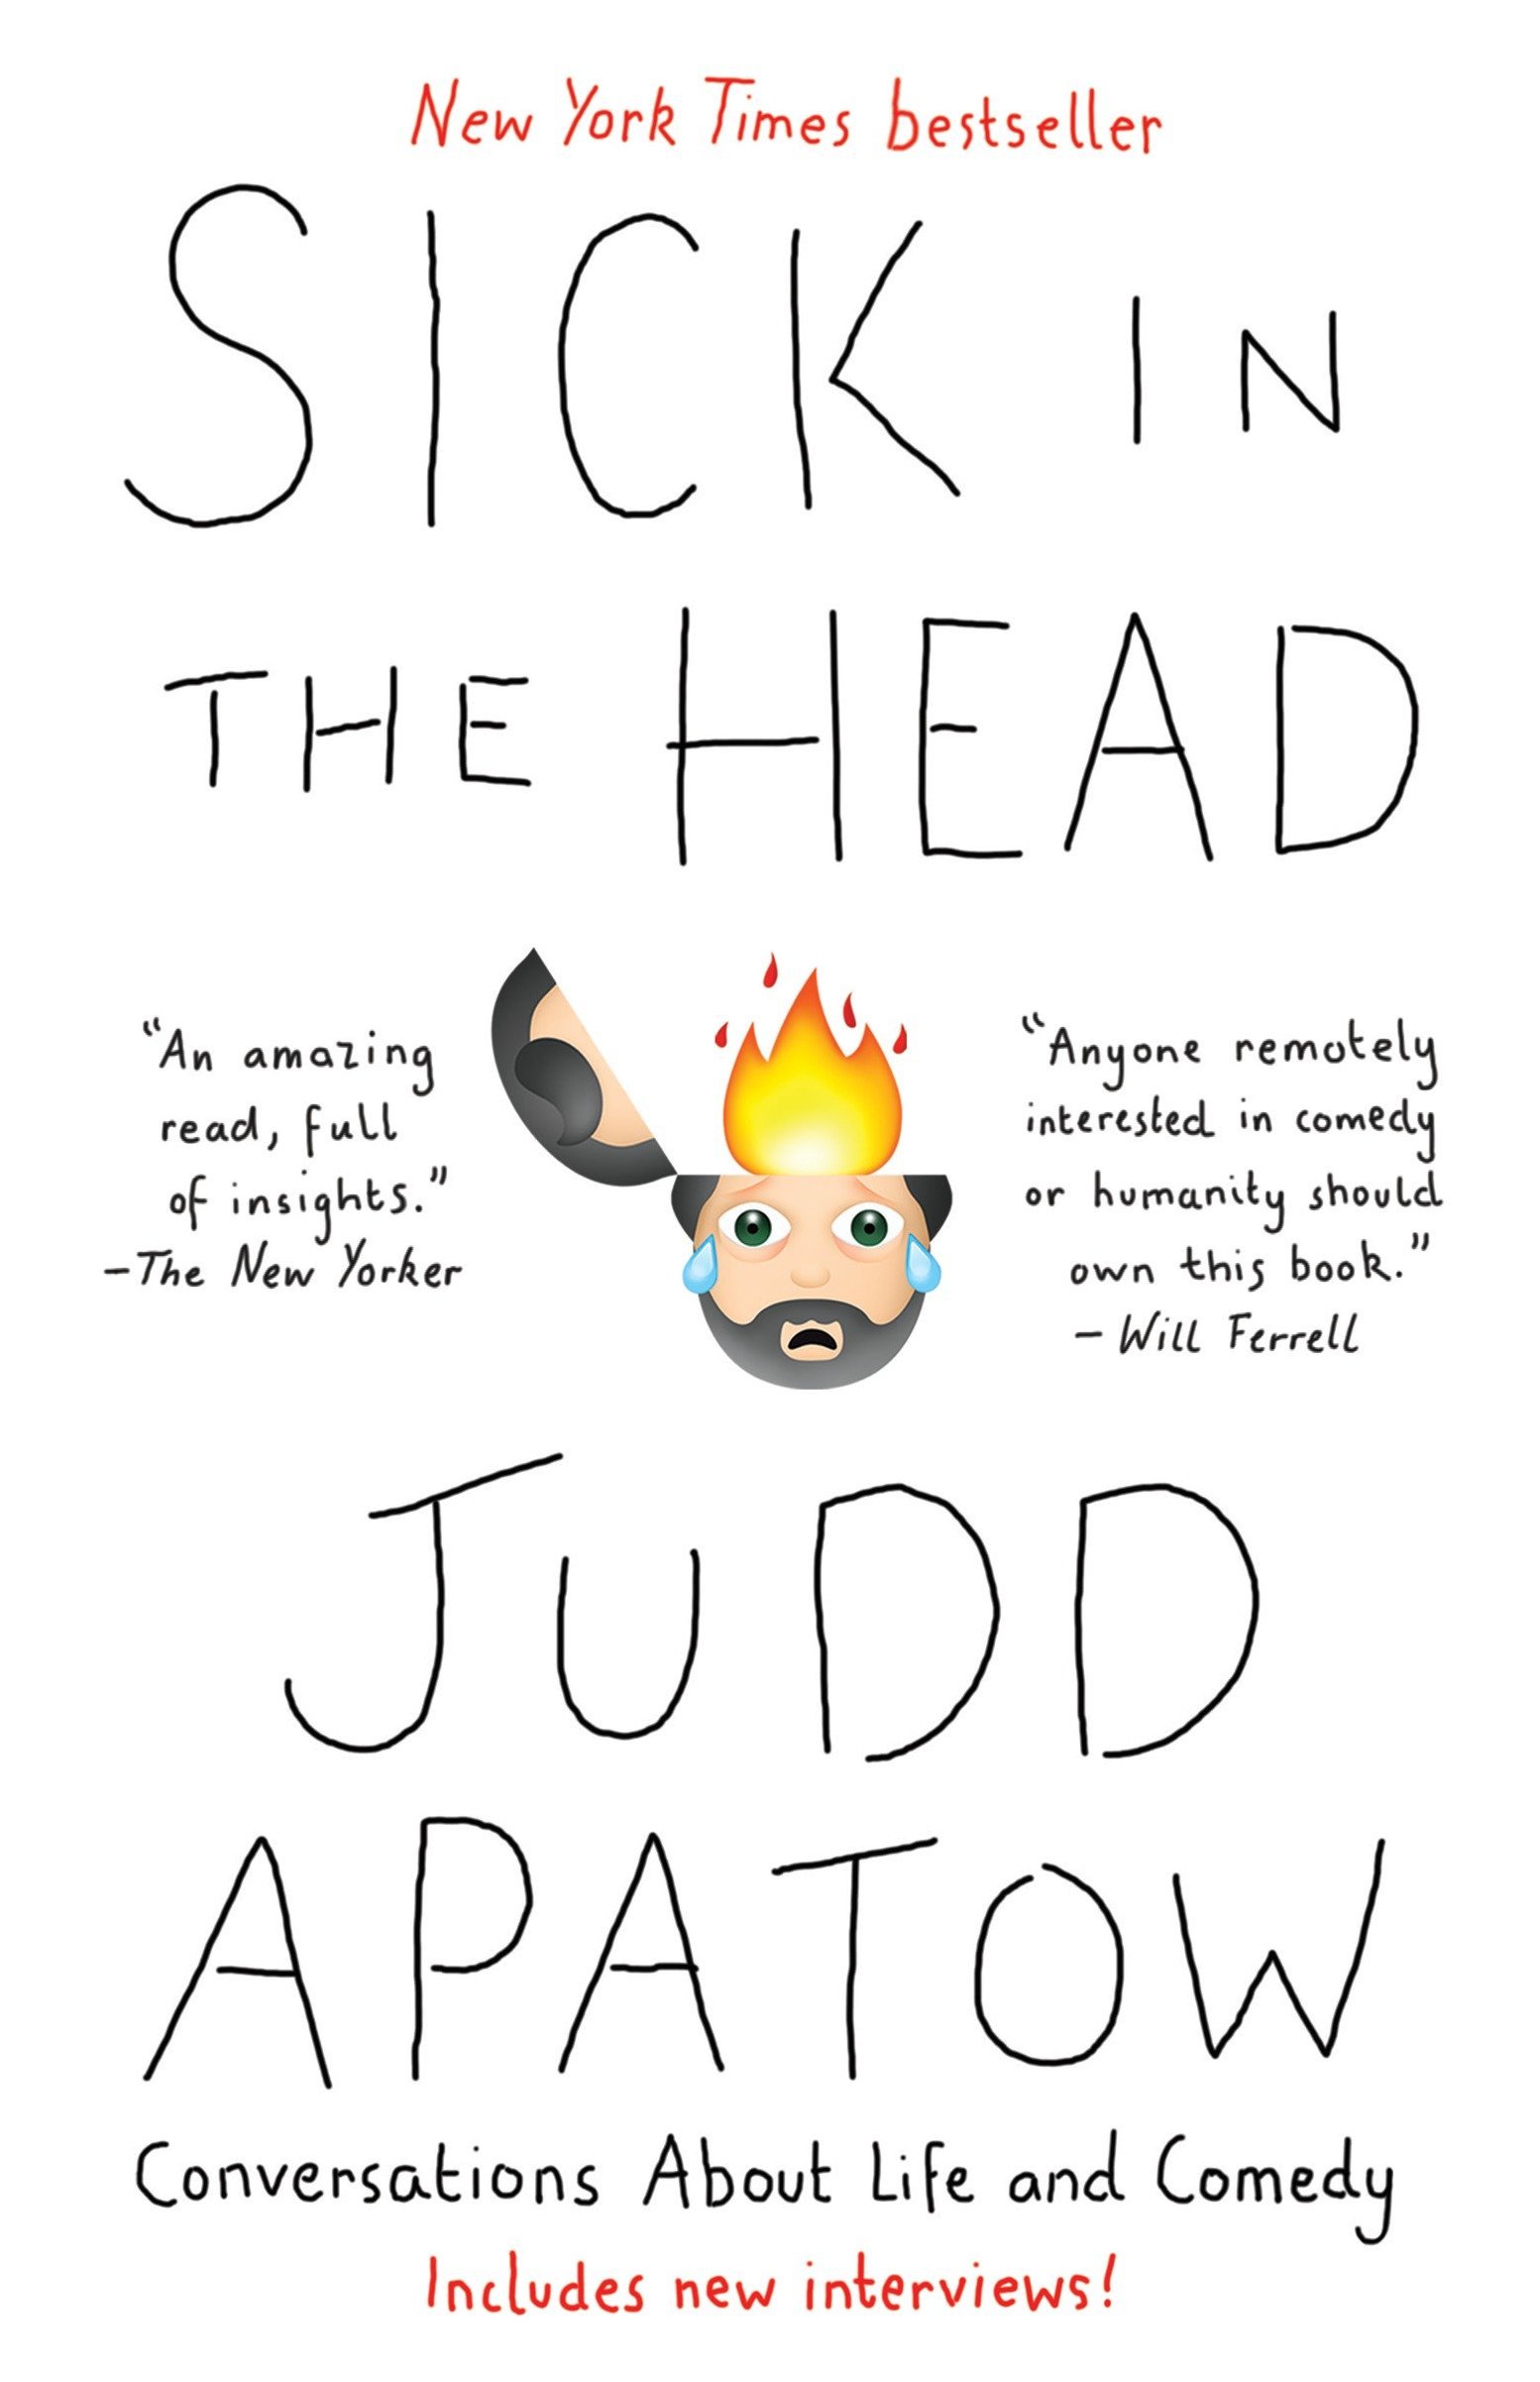 New York Times bestseller
SICK IN
THE HEAD
“An amazing
read, full
of insights.”
—The New Yorker
“Anyone remotely
interested in comedy
or humanity should
own this book.”
— Will Ferrell
JUDD
APATOW
Conversations About Life and Comedy
Includes new interviews!